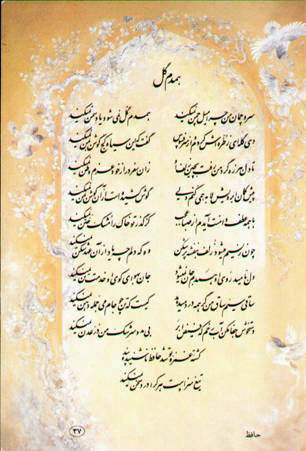 همدم گل
سرو چمان من چرا میل چمن نمیکند
همدم گل نمی شود یاد سمن نمیکند
دی گله ای ز طره اش کردم و از سر فسوس
گفت که این سیاه کج گوش به من نمیکند
تا دل هرزه گرد من رفت به چین زلف او
زان سفر دراز خود عزم وطن نمیکند
پیش کمان ابرویش لابه همی کنم ولی
گوش کشیده است از آن گوش به من نمیکند
با همه عطف دامنت آیدم از صبا عجب
کز گذر تو خاک را مشک ختن نمیکند
چون ز نسیم میشود زلف بنفشه پرشکن
وه که دلم چه یاد از آن عهدشکن نمیکند
دل به امید روی او همدم جان نمیشود
جان به هوای کوی او خدمت تن نمیکند
ساقی سیم ساق من گر همه درد میدهد
کیست که تن چو جام می جمله دهن نمیکند
دستخوش جفا مکن آب رخم که فیض ابر
بی مدد سرشک من در عدن نمیکند
کشته غمزه تو شد حافظ ناشنیده پند
تیغ سزاست هر که را درد سخن نمیکند
حافظ
۳۷